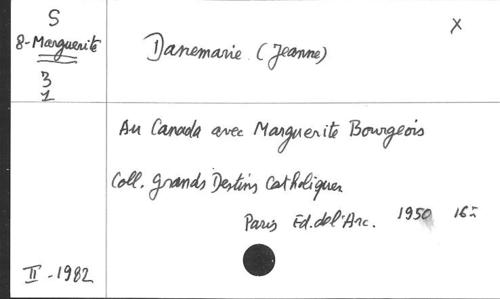 S
8-Marguerite
3
1
Danemarie (Jeanne)
X
Au Canada avec Marguerite Bourgeois
Coll. Grands Destins Catholiques
Paris Ed. de l'Arc. 1950 16º
II - 1982